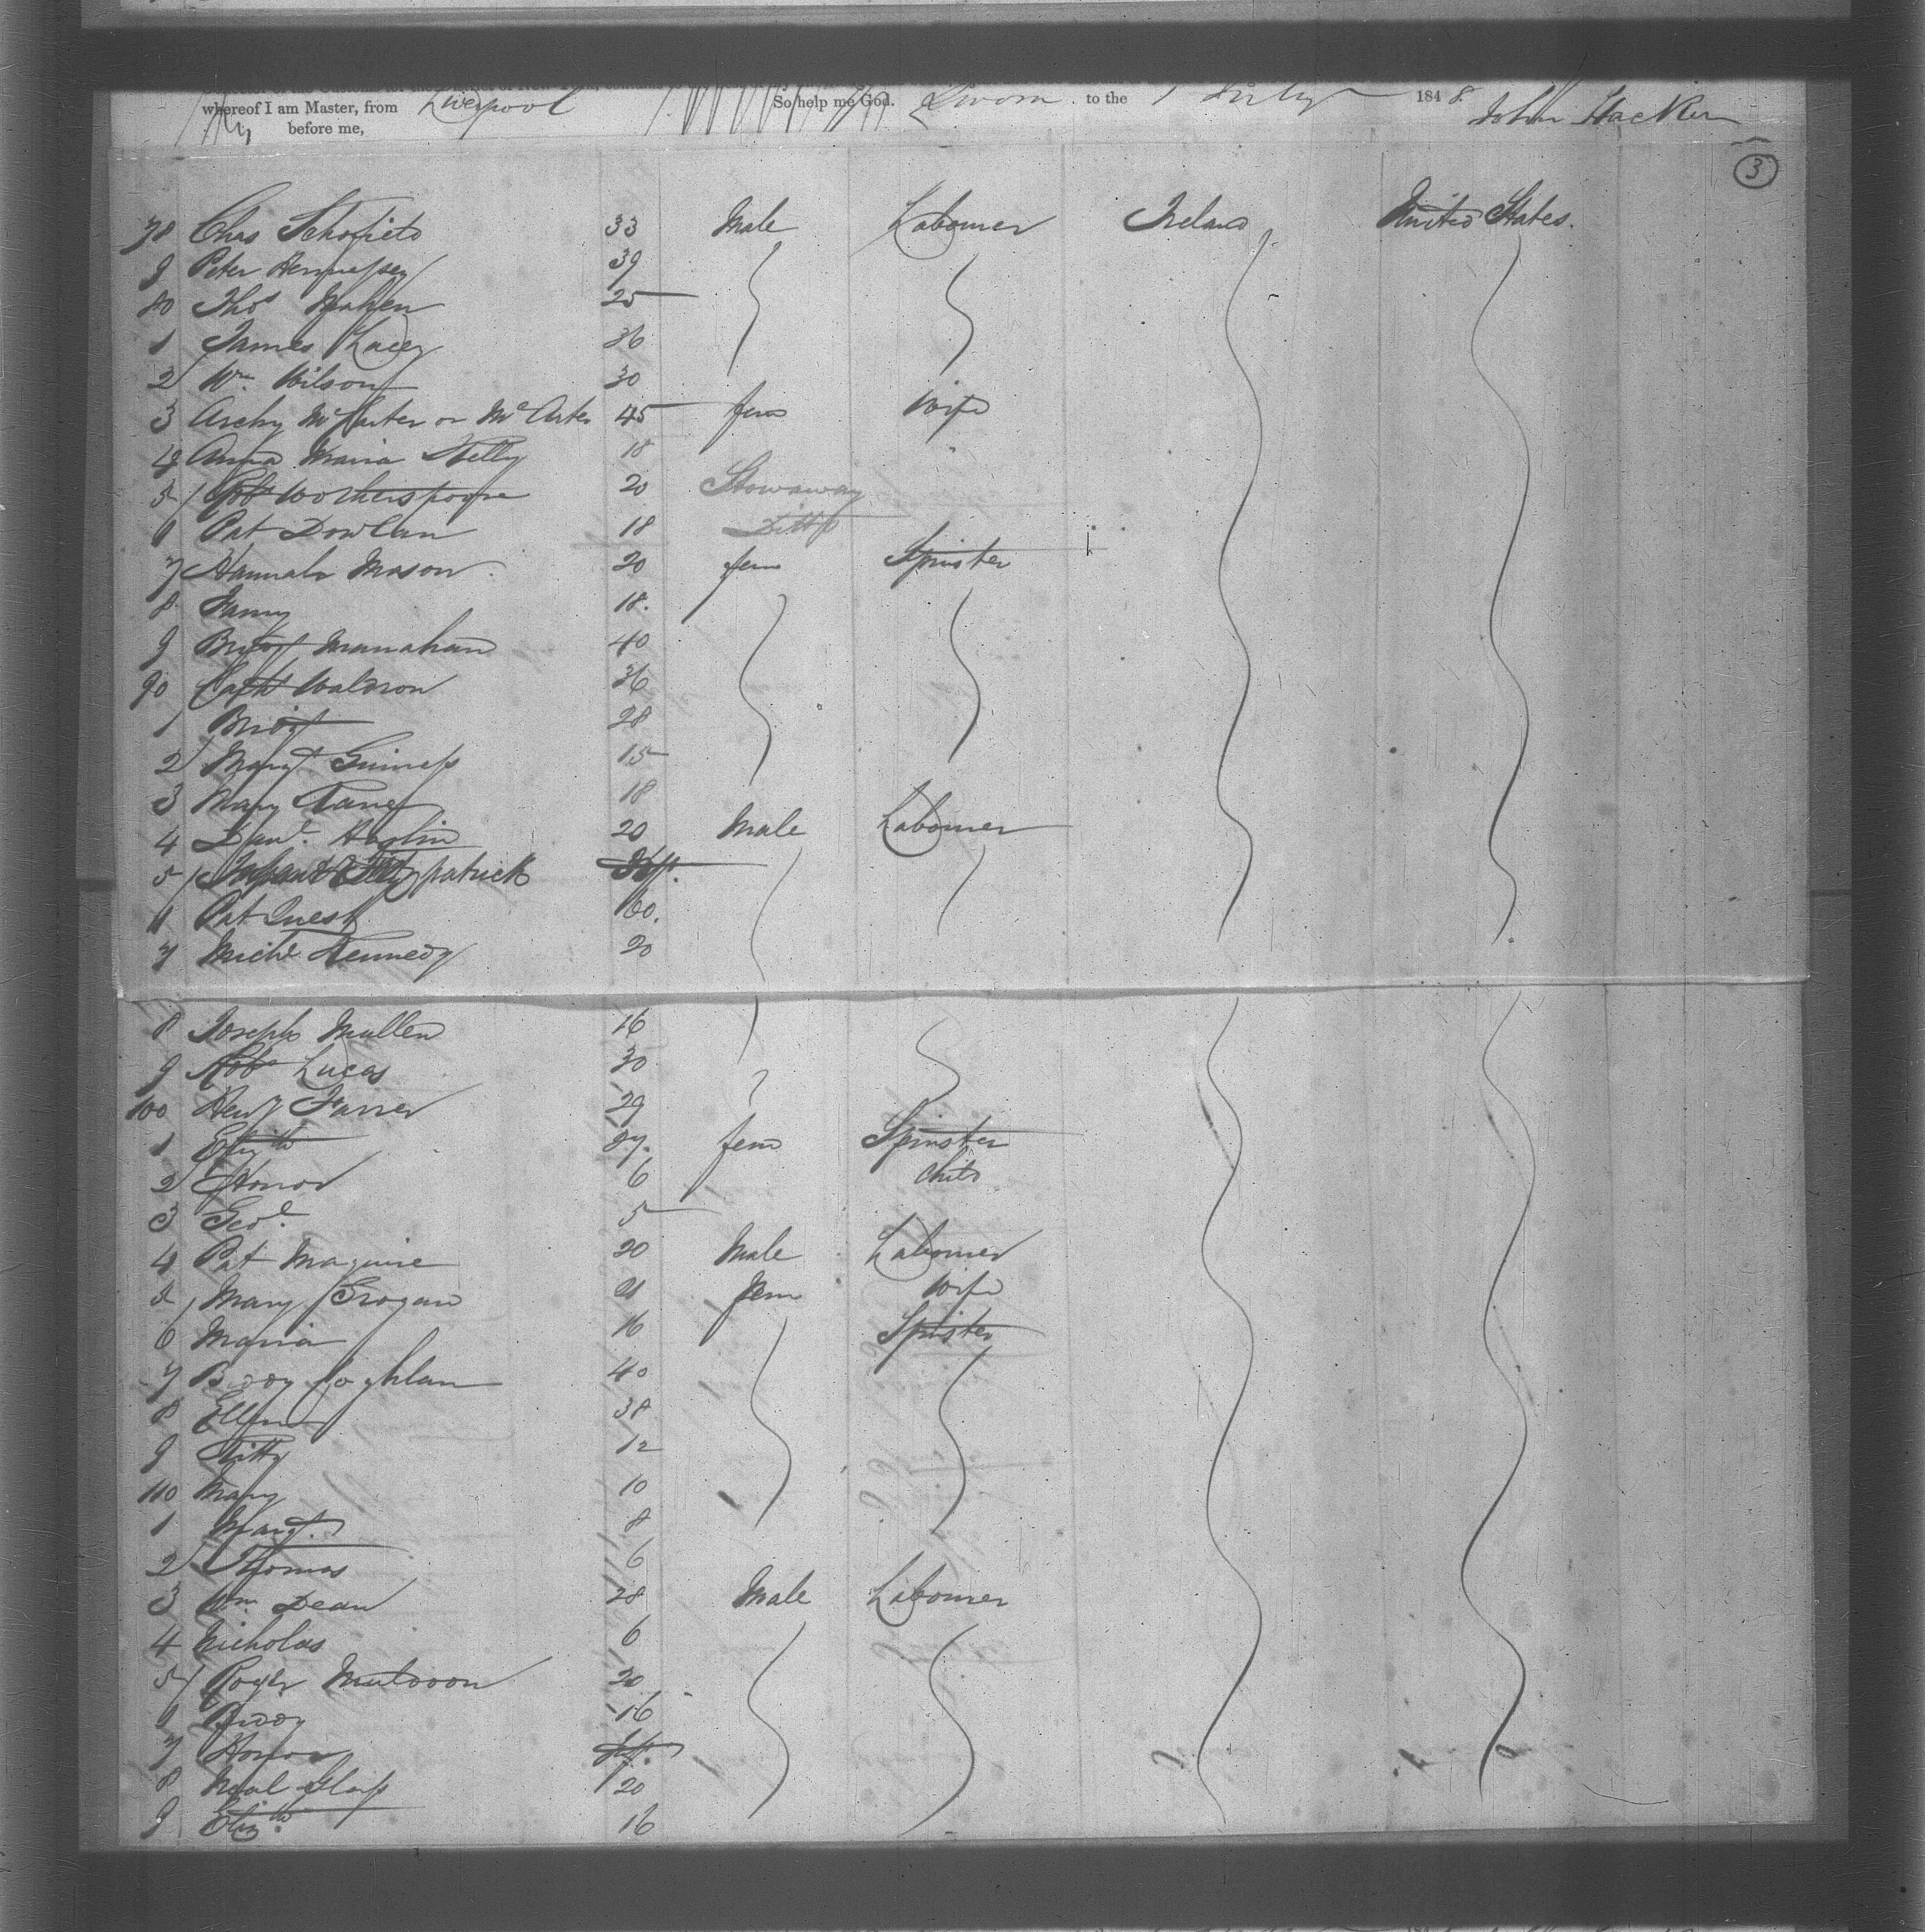 whereof I am Master, from Liverpool So help me God. Sworn to the 1 July 1848. John Hacker
before me,
3
78 Chas Schofield 33 Male Labourer Ireland United States.
9 Peter Hennessey 39
80 Thos Mahen 25
1 James Lacey 36
2 Wm. Wilson 30
3 Archy McCarter or McArter 45 fem Wife
4 Anna Maria Kelly 18 "
5 Robt Wotherspoone 20 Stowaway
6 Pat Dowlan 18 Ditto
7 Hannah Mason 20 fem Spinster
8 Fanny 18.
9 Bridgt Manahan 40
90 Cath Waldron 36
1 Bridgt 28
2 Margt Guiness 15
3 Mary Kane 18
4 Danl. 20 Male Labourer
5 Infant Fitzpatrick Inft.
6 Pat Quest 60.
7 Michl Kennedy 20
8 Joseph Mullen 16
9 Robt Lucas 30
100 Henry Farrer 29
1 Elizth 27. fem Spinster
2 Honor 6 Child
3 5
4 Pat Maguire 20 Male Labourer
5 Mary Grogan 21 fem Wife
6 Maria 16 Spinster
7 Biddy Coghlan 40
8 Ellen 38
9 Kitty 12
110 Mary 10
1 Margt. 8
2 Thomas 6
3 Wm Dean 28 Male Labourer
4 Nicholas 6
5 Roger Muldoon 20
6 Biddy 16
7 Honor Inft.
8 Neal Glass 20
9 Elizth. 16